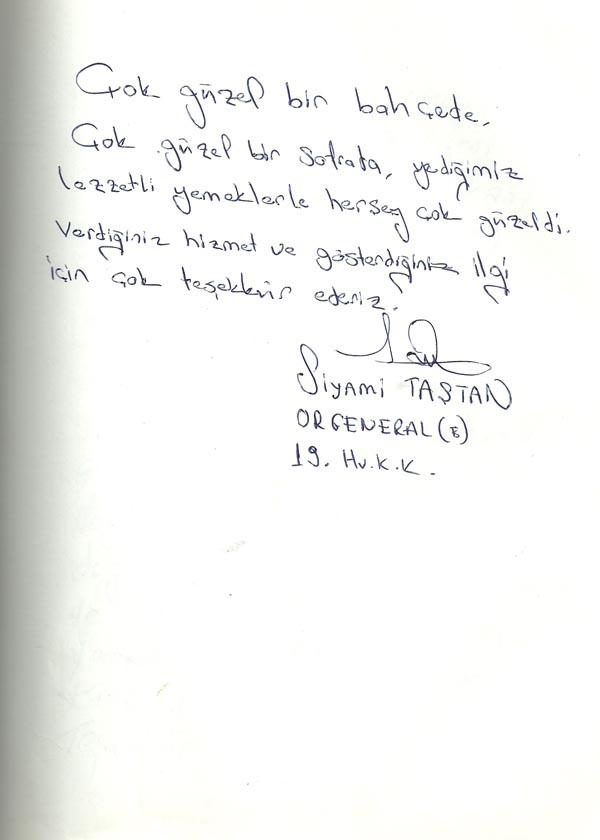 Çok güzel bir bahçede,
Çok güzel bir sofrada, yediğimiz
lezzetli yemeklerle herşey çok güzeldi.
Verdiğiniz hizmet ve gösterdiğiniz ilgi
için çok teşekkür ederiz.
Siyami TAŞTAN
ORGENERAL (E)
19. Hv.K.K.